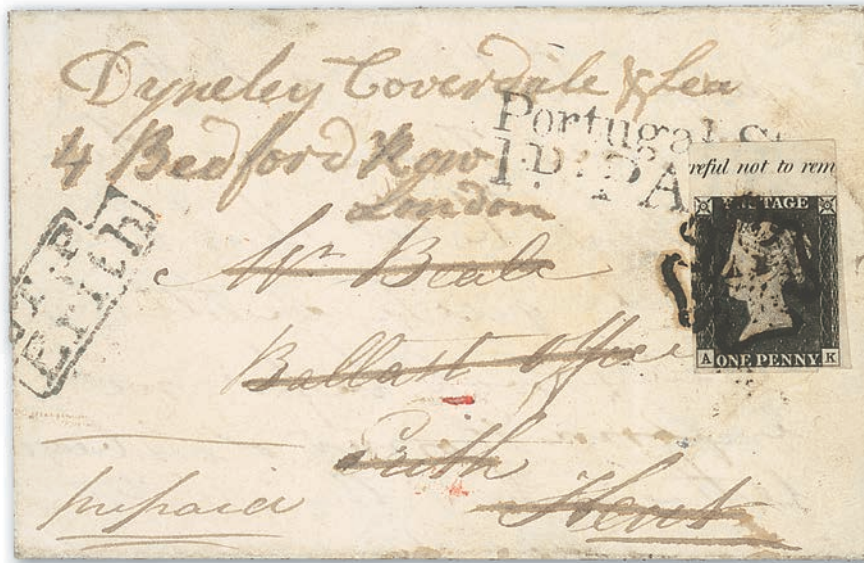 Dyneley Coverdale & Lea
4 Bedford Row
London
Portugal St
1.D: PA
reful not to rem
POSTAGE
A ONE PENNY K
T.P
Erith
Mr. Beale
Ballast Office
Erith
Kent
prepaid